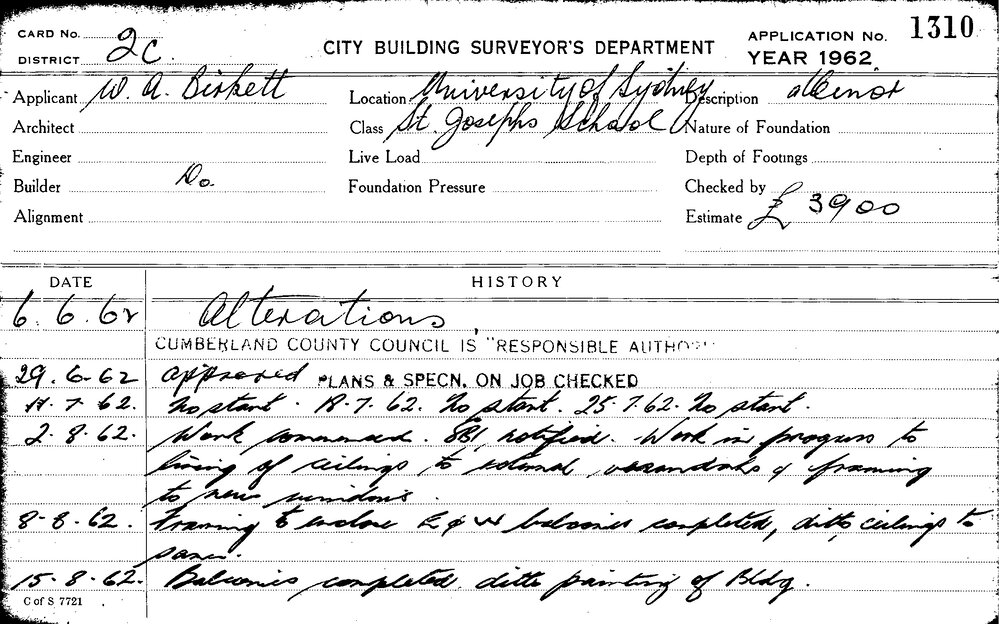 CARD No.
DISTRICT 2C.
CITY BUILDING SURVEYOR'S DEPARTMENT
APPLICATION No. 1310
YEAR 1962
Applicant W. A. Birkett Location University of Sydney Description Minor
Architect Class St. Josephs School Nature of Foundation
Engineer Live Load Depth of Footings
Builder Do. Foundation Pressure Checked by
Alignment Estimate £ 3900
DATE HISTORY
6.6.62 Alterations
CUMBERLAND COUNTY COUNCIL IS "RESPONSIBLE AUTHO
29.6.62 approved PLANS & SPECN. ON JOB CHECKED
11.7.62. No start. 18.7.62. No start. 25.7.62. No start.
2.8.62. Work commenced. notified. Work in progress to
lining of ceilings to external verandahs & framing
to new windows.
8-8-62. Framing to enclose E & W balconies completed, ditto ceilings to
same.
15.8.62. Balconies completed ditto painting of Bldg.
C of S 7721